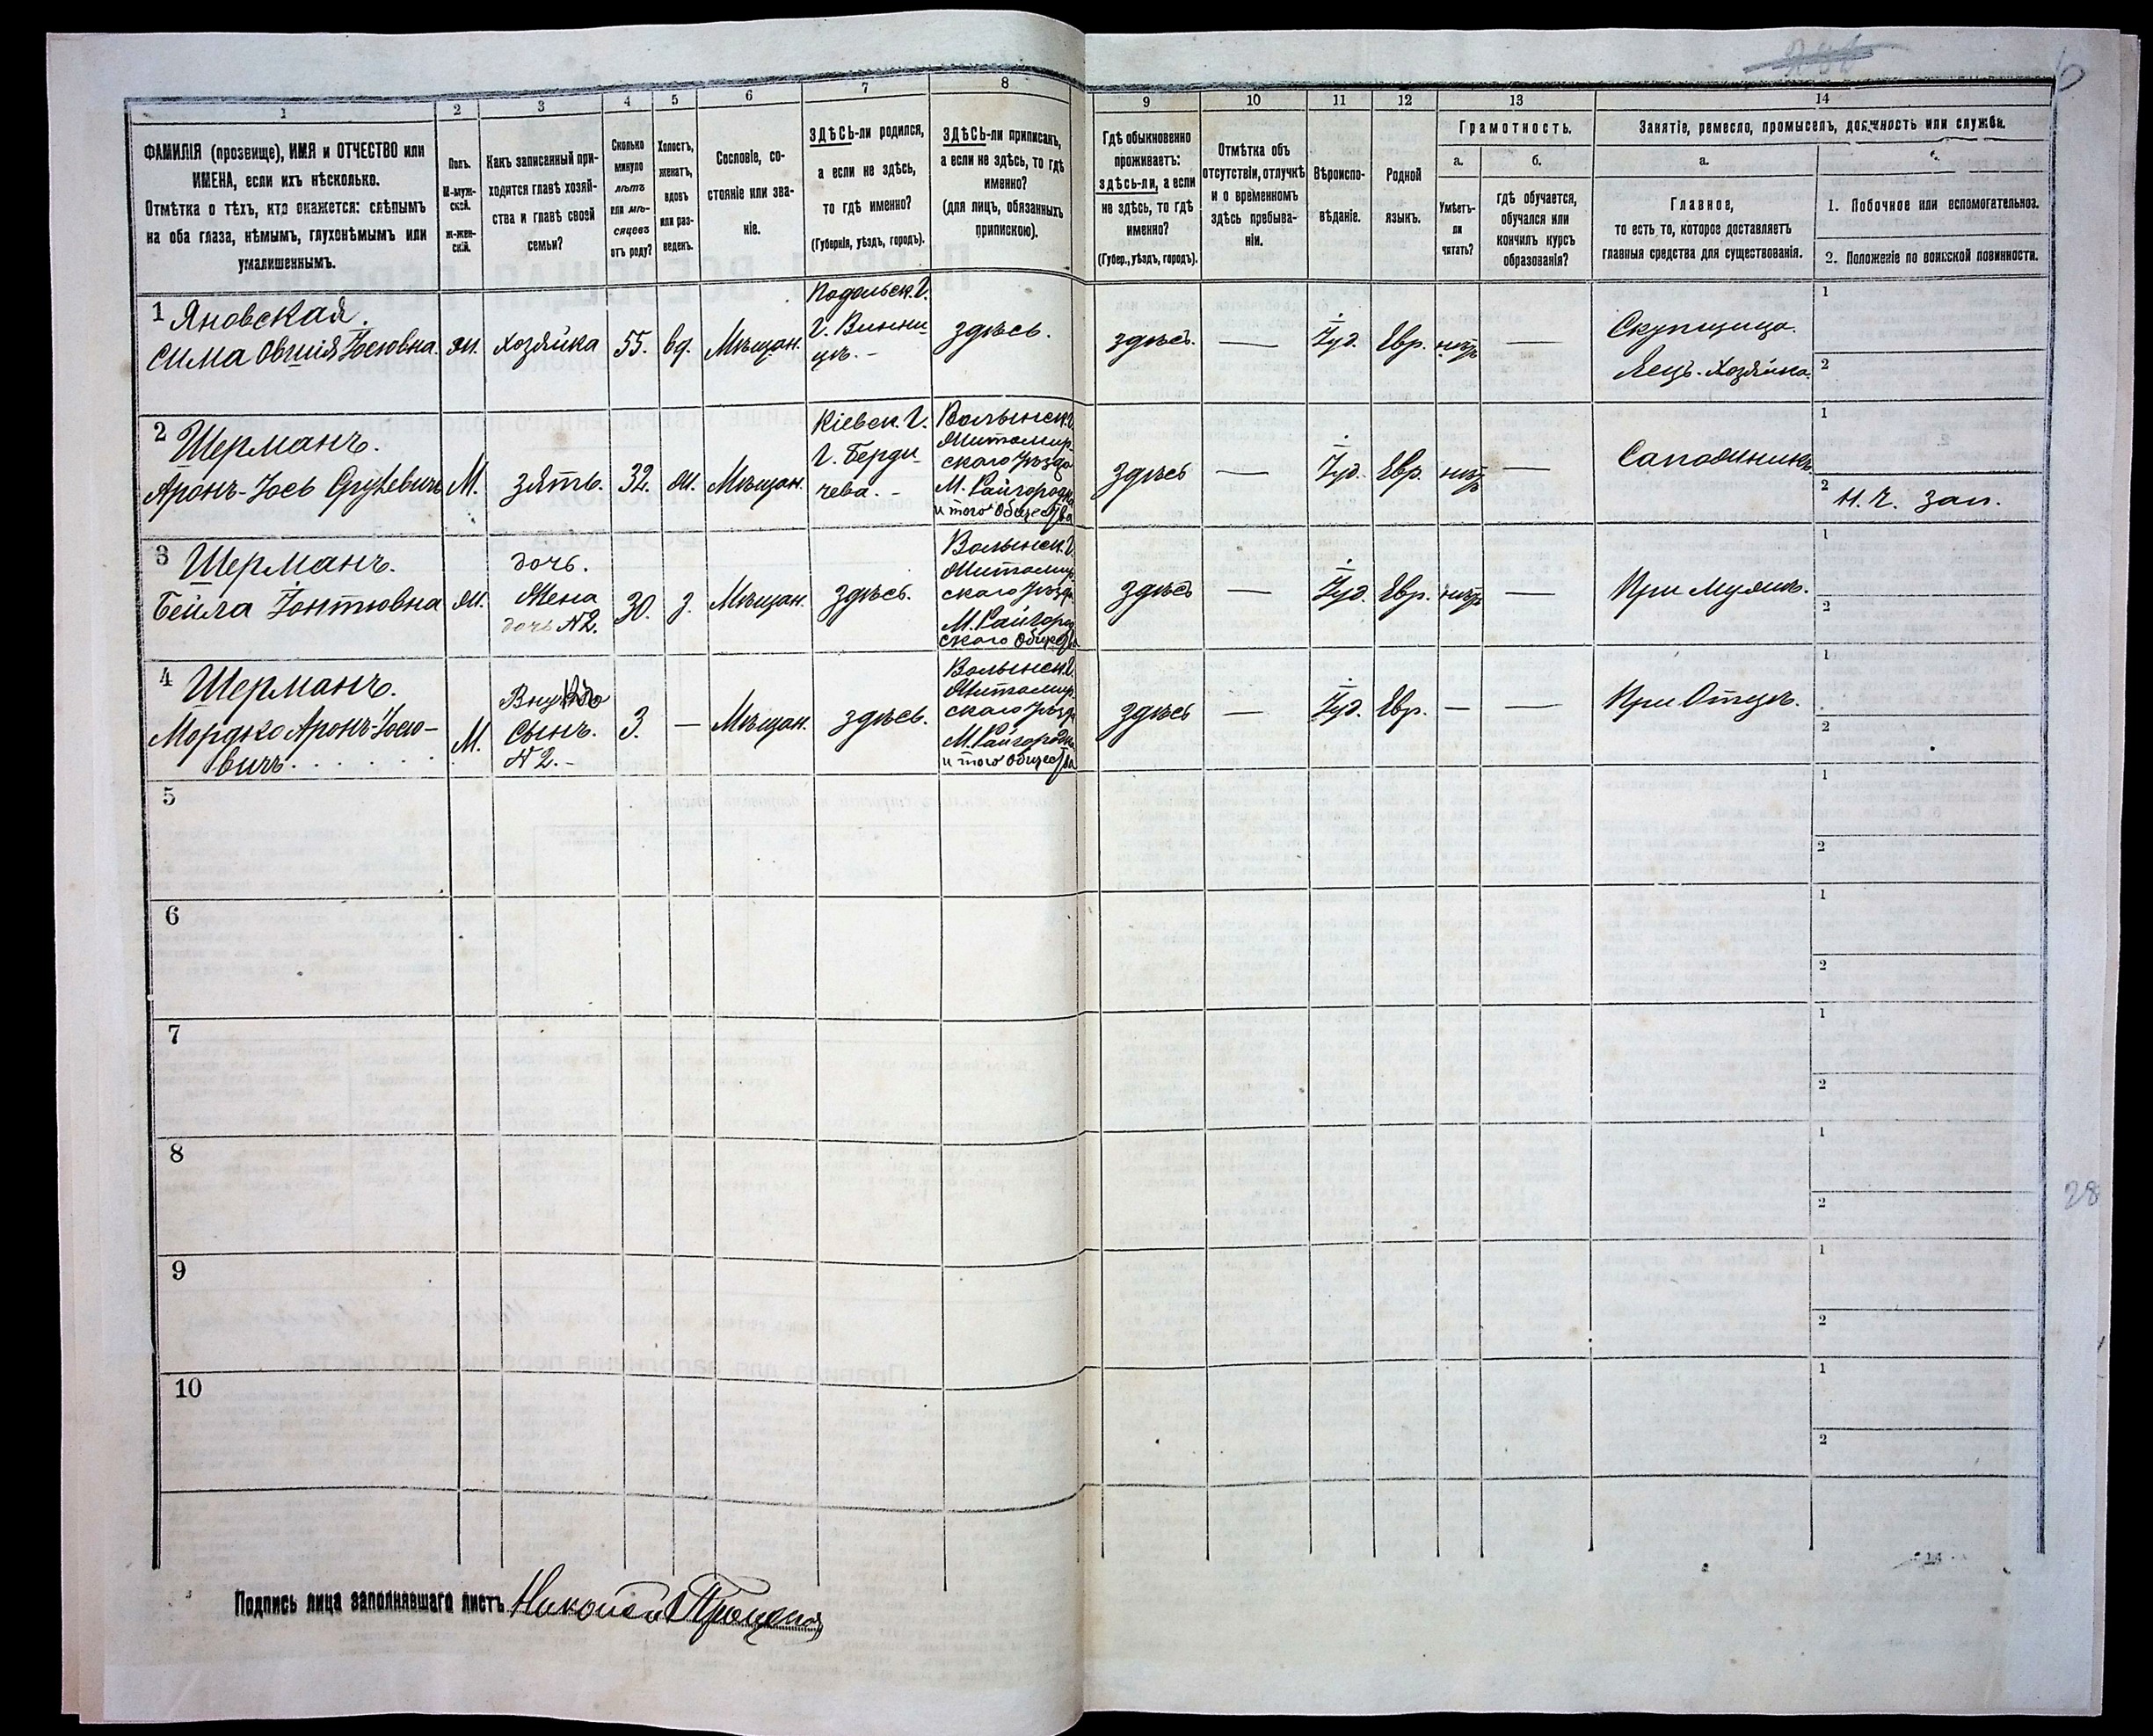 1
2
3
4
5
6
7
8
9
10
11
12
13
14
ФАМИЛІЯ (прозвище), ИМЯ и ОТЧЕСТВО или
ИМЕНА, если ихъ нѣсколько.
Отмѣтка о тѣхъ, кто окажется: слѣпымъ
на оба глаза, нѣмымъ, глухонѣмымъ или
умалишеннымъ.
Полъ.
М-муж-
ской.
Ж-жен-
скій.
Какъ записанный при-
ходится главѣ хозяй-
ства и главѣ своей
семьи?
Сколько
минуло
лѣтъ
или мѣ-
сяцевъ
отъ роду?
Холостъ,
женатъ,
вдовъ
или раз-
веденъ.
Сословіе, со-
стояніе или зва-
ніе.
ЗДѢСЬ-ли родился,
а если не здѣсь,
то гдѣ именно?
(Губернія, уѣздъ, городъ).
ЗДѢСЬ-ли приписанъ,
а если не здѣсь, то гдѣ
именно?
(для лицъ, обязанныхъ
припискою).
Гдѣ обыкновенно
проживаетъ:
здѣсь-ли, а если
не здѣсь, то гдѣ
именно?
(Губер., уѣздъ, городъ).
Отмѣтка объ
отсутствіи, отлучкѣ
и о временномъ
здѣсь пребыва-
ніи.
Вѣроиспо-
вѣданіе.
Родной
языкъ.
Грамотность.
а.
Умѣетъ-
ли
читать?
б.
гдѣ обучается,
обучался или
кончилъ курсъ
образованія?
Занятіе, ремесло, промыселъ, должность или служба.
а.
Главное,
то есть то, которое доставляетъ
главныя средства для существованія.
1. Побочное или вспомогательное.
2. Положеніе по воинской повинности.
1 Яновская.
Сима Овшія Іосювна.
ж.
хозяйка
55.
вд.
Мѣщан.
Подольск. Г.
Г. Винни-
цѣ.-
здѣсь.
здѣсь.
—
Іуд.
Евр.
нѣтъ
—
Скупщица
Яецъ. Хозяйка.
1
2
2 Шерманъ.
Аронъ-Іось
М.
зять.
32.
ж.
Мѣщан.
Кіевск. Г.
Г. Берди-
чева.-
Волынск. Г.
Житомир-
скаго уѣзда
М. Райгородка
и того Общества
здѣсь
—
Іуд.
Евр.
нѣтъ
—
Сапожникъ.
1
2 Н. Ч. зап.
3 Шерманъ.
Бейла Іонтювна
ж.
дочь.
Жена
дочь N2.
30.
з.
Мѣщан.
здѣсь.
Волынск. Г.
Житомир-
скаго уѣзда
М. Райгород-
скаго Общества
здѣсь
—
Іуд.
Евр.
нѣтъ
—
При Мужѣ.
1
2
4 Шерманъ.
Мордко Аронъ-Іосю-
вичъ . . . . . .
М.
Внукъ
Сынъ.
N 2.-
3.
—
Мѣщан.
здѣсь.
Волынск. Г.
Житомир-
скаго уѣзда
М. Райгородка
и того Общества
здѣсь
—
Іуд.
Евр.
—
—
При Отцѣ.
1
2
5
1
2
6
1
2
7
1
2
8
1
2
28
9
1
2
10
1
2
Подпись лица заполнявшаго листъ